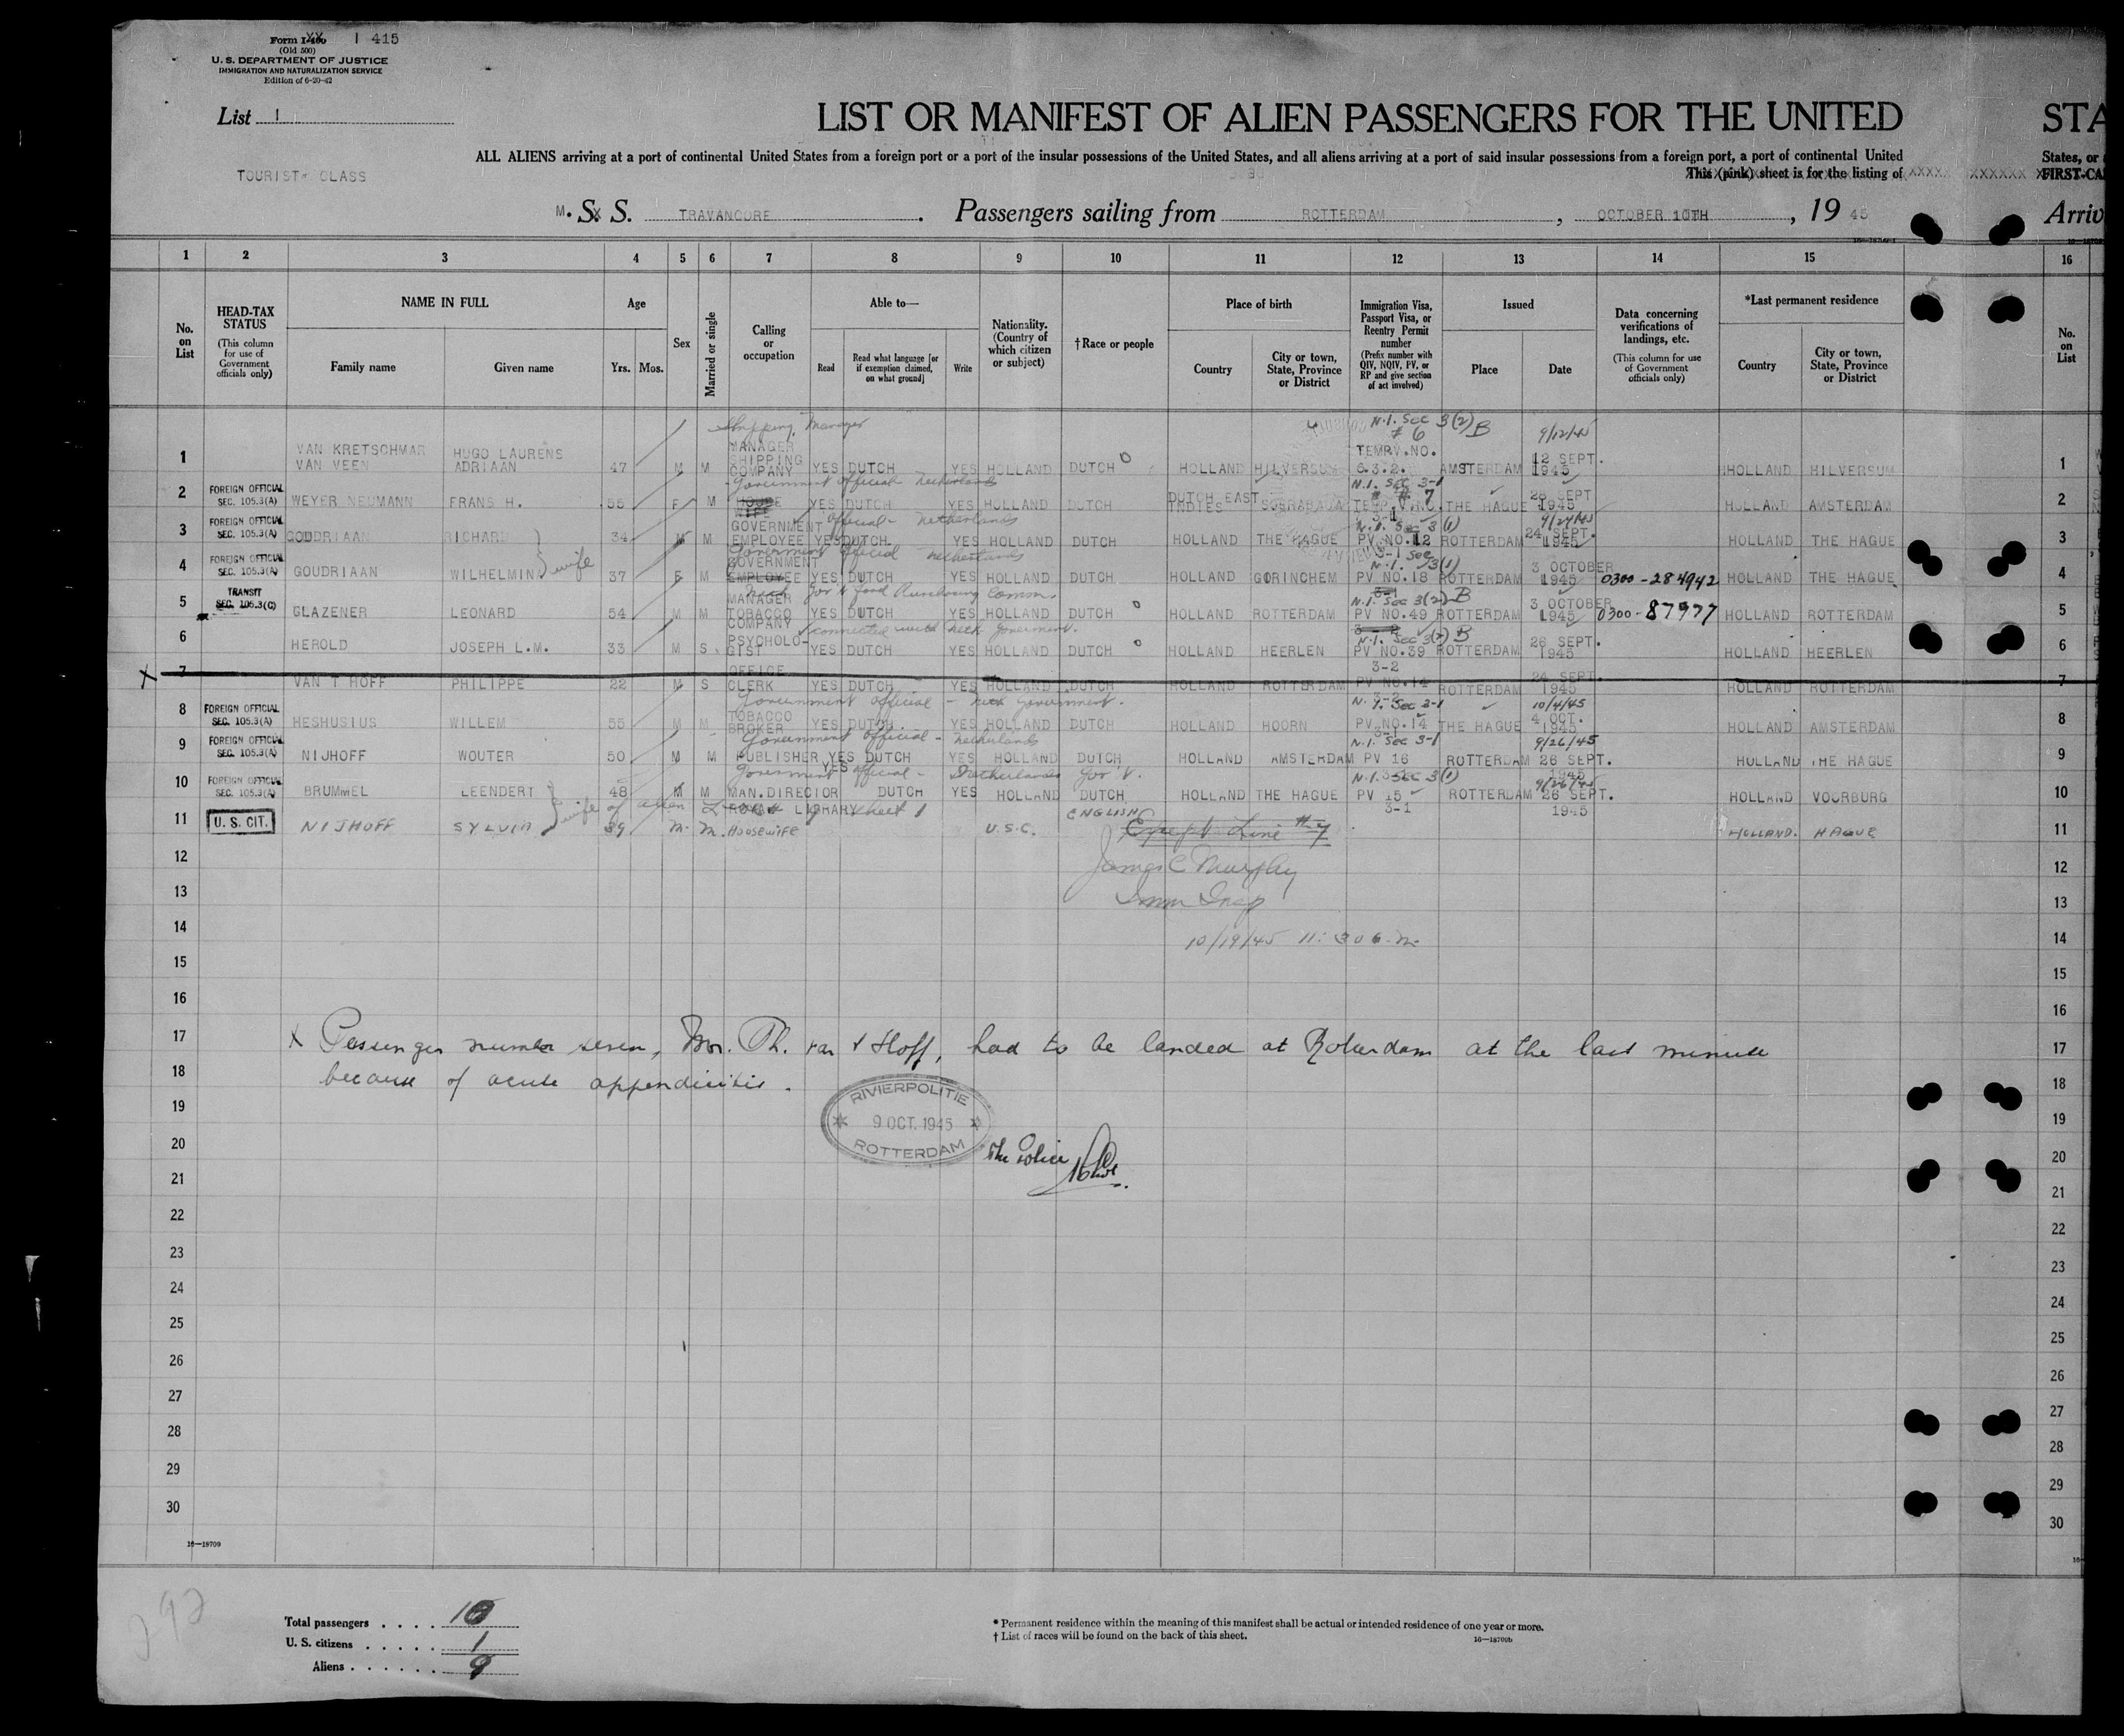 Form I-400 XX I 415
(Old 500)
U. S. DEPARTMENT OF JUSTICE
IMMIGRATION AND NATURALIZATION SERVICE
Edition of 6-20-42
List 1
LIST OR MANIFEST OF ALIEN PASSENGERS FOR THE UNITED STA
ALL ALIENS arriving at a port of continental United States from a foreign port or a port of the insular possessions of the United States, and all aliens arriving at a port of said insular possessions from a foreign port, a port of continental United States, or
TOURIST CLASS
This (pink) sheet is for the listing of XXXXX XXXXXX FIRST-CA
M. S. S. TRAVANCORE. Passengers sailing from ROTTERDAM, OCTOBER 10TH, 19 45 Arriv
1 2 3 4 5 6 7 8 9 10 11 12 13 14 15 16
No. on List
HEAD-TAX STATUS (This column for use of Government officials only)
NAME IN FULL Family name Given name
Age Yrs. Mos.
Sex
Married or single
Calling or occupation
Able to— Read Read what language [or if exemption claimed, on what ground] Write
Nationality. (Country of which citizen or subject)
†Race or people
Place of birth Country City or town, State, Province or District
Immigration Visa, Passport Visa, or Reentry Permit number (Prefix number with QIV, NQIV, PV, or RP and give section of act involved)
Issued Place Date
Data concerning verifications of landings, etc. (This column for use of Government officials only)
*Last permanent residence Country City or town, State, Province or District
No. on List
Shipping Manager N.I. Sec 3(2) B #6 9/12/45
1 VAN KRETSCHMAR VAN VEEN HUGO LAURENS ADRIAAN 47 M M MANAGER SHIPPING COMPANY YES DUTCH YES HOLLAND DUTCH HOLLAND HILVERSUM TEMP.V.NO. 6.3.2. AMSTERDAM 12 SEPT. 1945 HOLLAND HILVERSUM 1
Government official Netherlands N.I. Sec 3-1 # 7
2 FOREIGN OFFICIAL SEC. 105.3(A) WEYER NEUMANN FRANS H. 55 F M HOUSE WIFE YES DUTCH YES HOLLAND DUTCH DUTCH EAST INDIES SOERABAJA TEMP.V.NO. 3-1 THE HAGUE 28 SEPT 1945 HOLLAND AMSTERDAM 2
official - Netherlands N.I. Sec 3(1) 9/24/45
3 FOREIGN OFFICIAL SEC. 105.3(A) GOUDRIAAN RICHARD 34 M M GOVERNMENT EMPLOYEE YES DUTCH YES HOLLAND DUTCH HOLLAND THE HAGUE PV NO.12 3-1 ROTTERDAM 24 SEPT. 1945 HOLLAND THE HAGUE 3
wife
Government official Netherlands N.I. Sec 3(1)
4 FOREIGN OFFICIAL SEC. 105.3(A) GOUDRIAAN WILHELMINA 37 F M GOVERNMENT EMPLOYEE YES DUTCH YES HOLLAND DUTCH HOLLAND GORINCHEM PV NO.18 3-1 ROTTERDAM 3 OCTOBER 1945 0300-284942 HOLLAND THE HAGUE 4
Food Purchasing Comm. N.I. Sec 3(2) B
5 TRANSIT SEC. 105.3(C) GLAZENER LEONARD 54 M M MANAGER TOBACCO COMPANY YES DUTCH YES HOLLAND DUTCH HOLLAND ROTTERDAM PV NO.49 3-2 ROTTERDAM 3 OCTOBER 1945 0300-87977 HOLLAND ROTTERDAM 5
connected with Neth. Goverment. N.I. Sec 3(2) B
6 HEROLD JOSEPH L.M. 33 M S PSYCHOLOGIST YES DUTCH YES HOLLAND DUTCH HOLLAND HEERLEN PV NO.39 3-2 ROTTERDAM 26 SEPT. 1945 HOLLAND HEERLEN 6
X 7 VAN T HOFF PHILIPPE 22 M S OFFICE CLERK YES DUTCH YES HOLLAND DUTCH HOLLAND ROTTERDAM PV NO.14 3-2 ROTTERDAM 24 SEPT. 1945 HOLLAND ROTTERDAM 7
Government official - Neth government. N.I. Sec 3-1 10/4/45
8 FOREIGN OFFICIAL SEC. 105.3(A) HESHUSIUS WILLEM 55 M M TOBACCO BROKER YES DUTCH YES HOLLAND DUTCH HOLLAND HOORN PV NO.14 3-1 THE HAGUE 4 OCT. 1945 HOLLAND AMSTERDAM 8
Government official - Netherlands N.I. Sec 3-1 9/26/45
9 FOREIGN OFFICIAL SEC. 105.3(A) NIJHOFF WOUTER 50 M M PUBLISHER YES DUTCH YES HOLLAND DUTCH HOLLAND AMSTERDAM PV 16 3-1 ROTTERDAM 26 SEPT. 1945 HOLLAND THE HAGUE 9
Goverment official - Netherlands Gov't. N.I. Sec 3(1) 9/26/45
10 FOREIGN OFFICIAL SEC. 105.3(A) BRUMMEL LEENDERT 48 M M MAN.DIRECTOR ROYAL LIBRARY YES DUTCH YES HOLLAND DUTCH HOLLAND THE HAGUE PV 15 3-1 ROTTERDAM 26 SEPT. 1945 HOLLAND VOORBURG 10
wife of alien Line 9 sheet 1
11 U. S. CIT. NIJHOFF SYLVIA 39 M. M. HOUSEWIFE U.S.C. ENGLISH HOLLAND. HAGUE 11
Except Line #7
12 James C Murphy 12
13 Imm Insp 13
14 10/19/45 11:30 a.m. 14
15 15
16 16
17 X Passenger number seven, Mr. Ph. van t Hoff, had to be landed at Rotterdam at the last minute 17
18 because of acute appendicitis. 18
19 RIVIERPOLITIE 9 OCT. 1945 ROTTERDAM 19
20 The Police 20
21 21
22 22
23 23
24 24
25 25
26 26
27 27
28 28
29 29
30 30
16—18709
292
Total passengers . . . . 10
U. S. citizens . . . . . 1
Aliens . . . . . . 9
* Permanent residence within the meaning of this manifest shall be actual or intended residence of one year or more.
† List of races will be found on the back of this sheet.
16—18709b